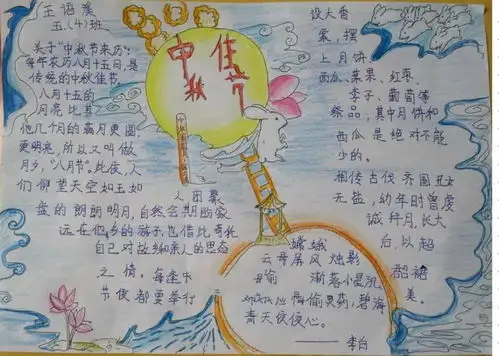 王语溪
五.(4)班
关于"中秋节来历":
每年农历八月十五日,是
传统的中秋佳节
八月十五的
月亮比其
他几个月的满月更圆
更明亮,所以又叫做
月夕,"八月节"。此夜,人
们仰望天空如玉如
盘的朗朗明月,自然会期盼家
人团聚
远在他乡的游子,也借此寄托
自己对故乡和亲人的思念
之情。每逢中
节夜都要举行
中秋
佳节
设大香
案,摆
上月饼、
西瓜、苹果、红枣
李子、葡萄等
祭品,其中月饼和
西瓜是绝对不能
少的。
相传古代齐国丑女
无盐,幼年时曾虔
诚拜月,长大
后,以超
嫦娥
云母屏风烛影
渐落小星沉
偷灵药,碧海
青天夜夜心。
——李白